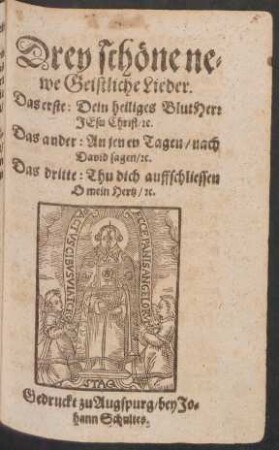 Drey schöne ne-
we Geistliche Lieder.
Das erste: Dein heiliges Blut Herr
JEsu Christ/ ꝛc.
Das ander: An jenen Tagen/ nach
David sagen/ ꝛc.
Das dritte: Thu dich auffschliessen
O mein Hertz/ ꝛc.
Gedruckt zu Augspurg/ bey Jo-
hann Schultes.